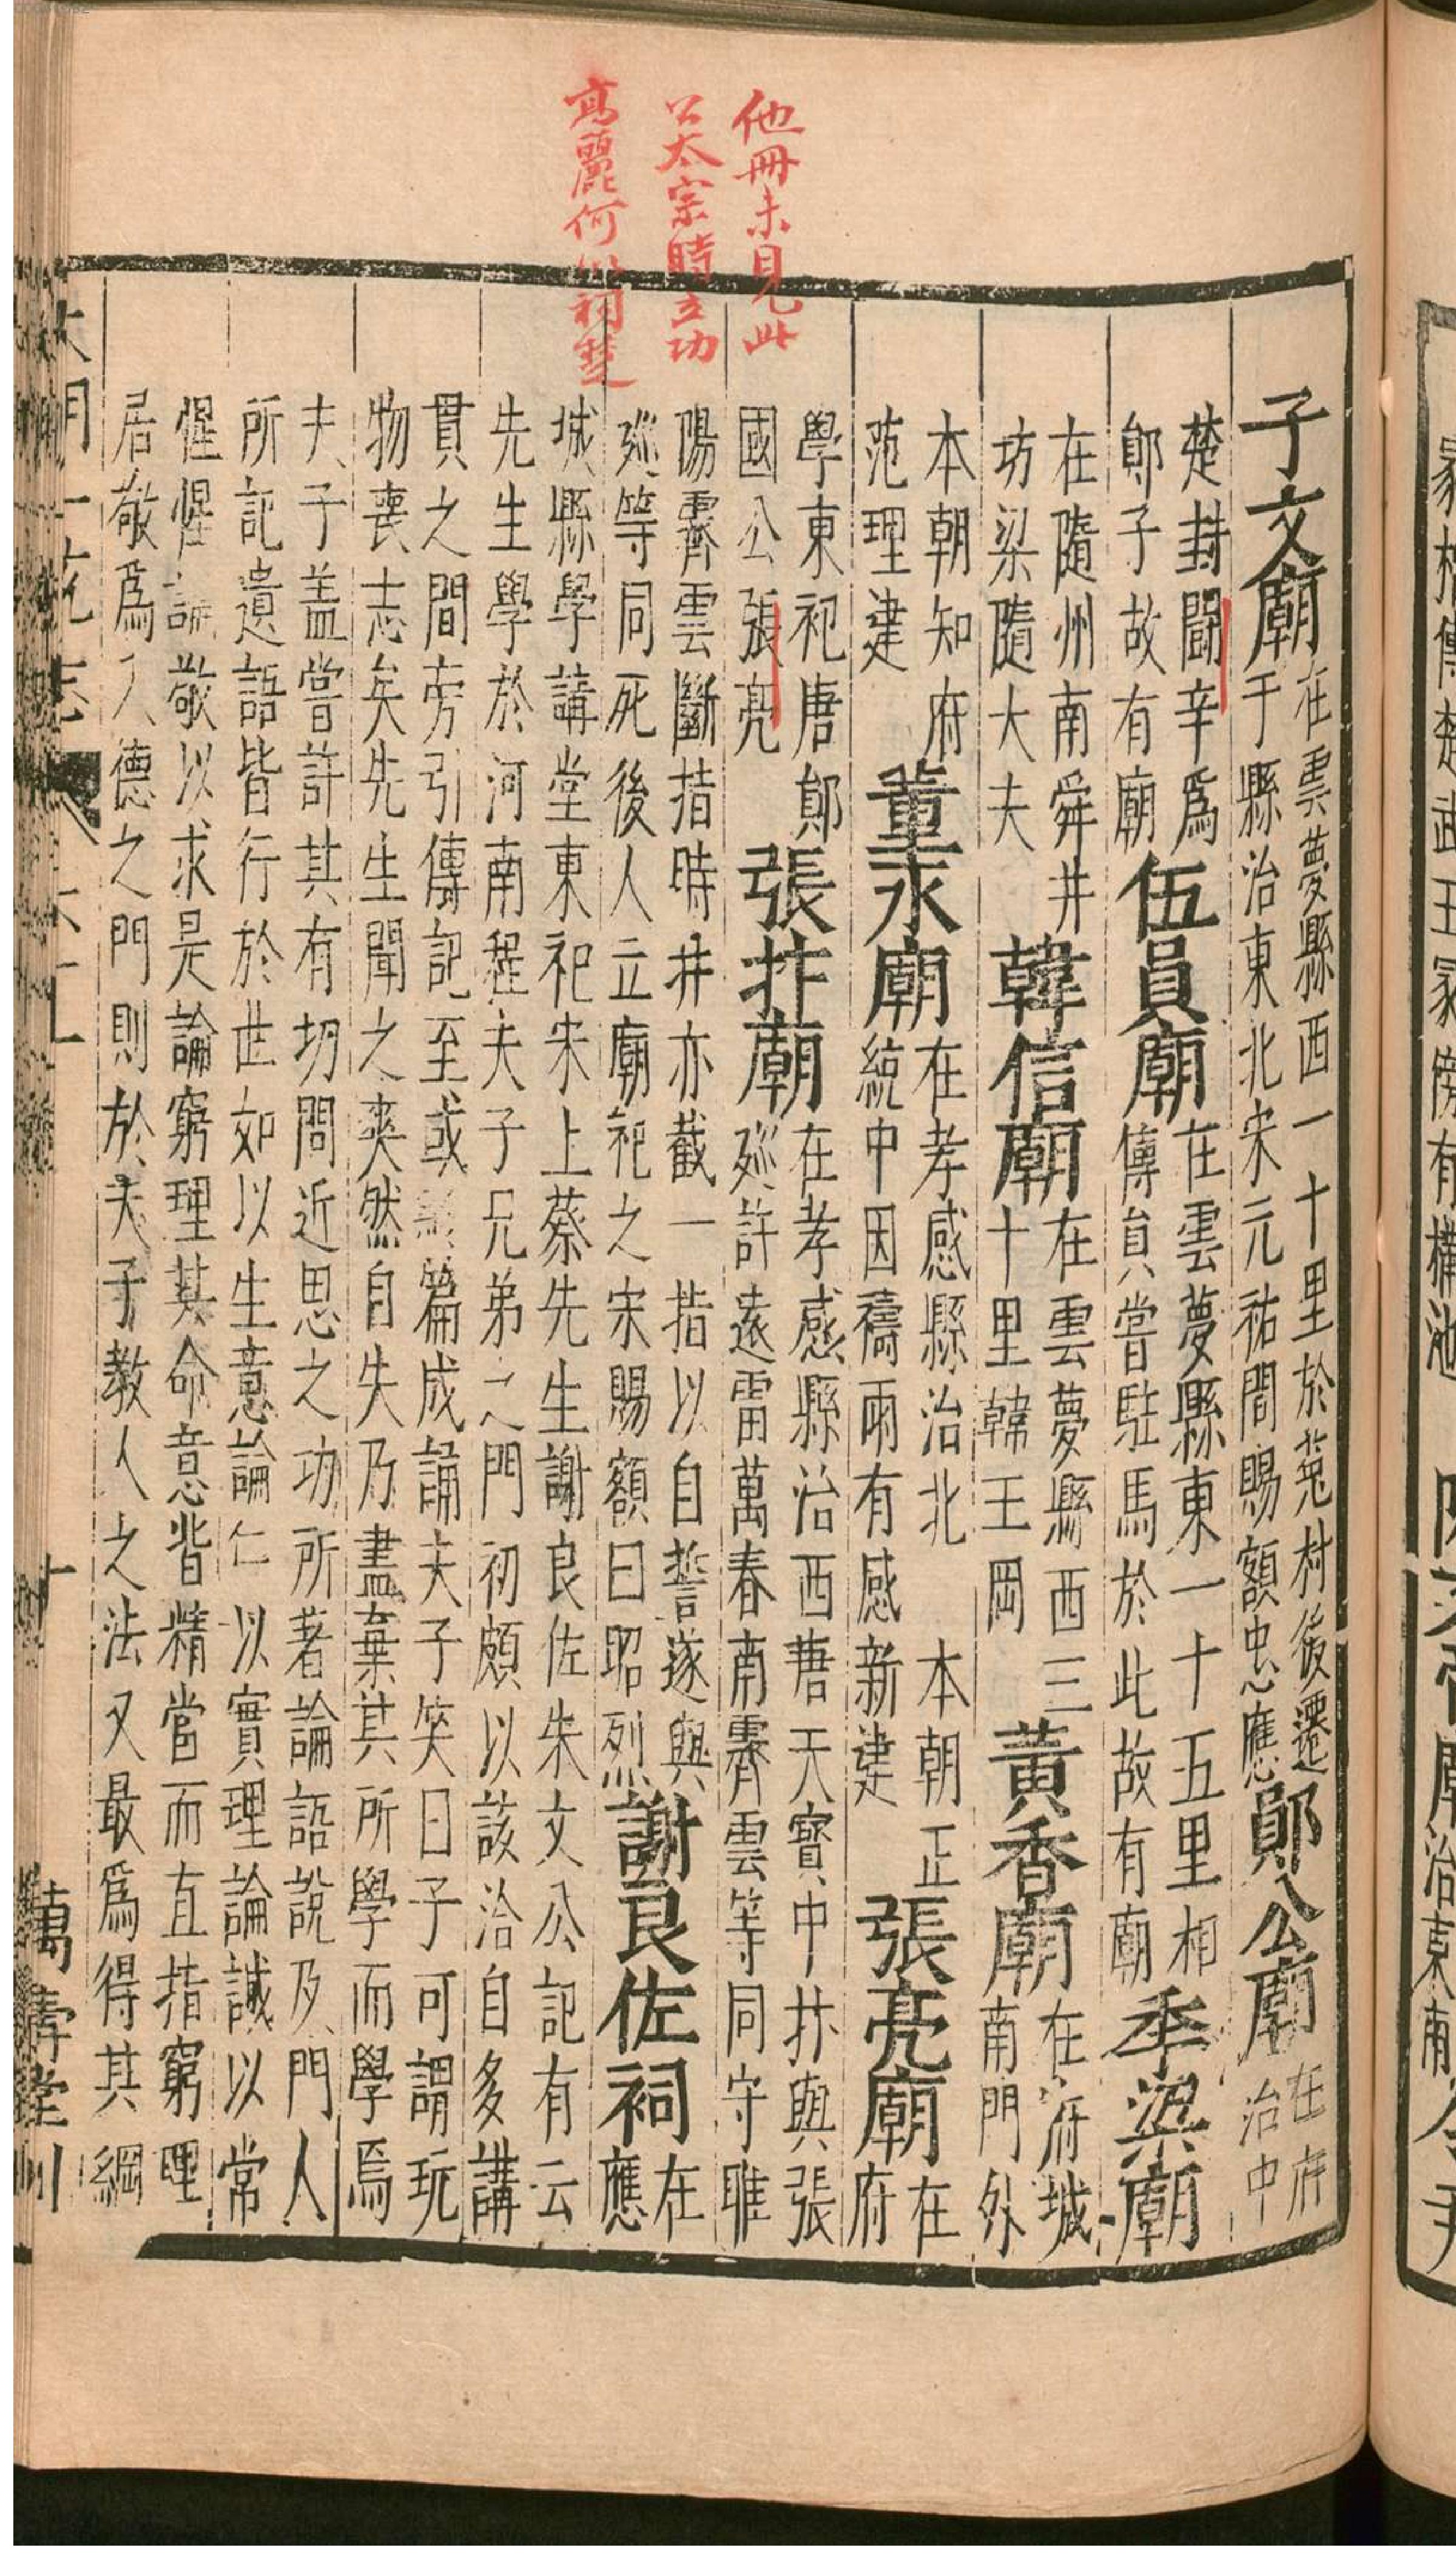 他冊未見此
公太宗時立功
高麗何以祠楚
子文廟
在雲夢縣西一十里於菟村後遷
于縣治東北宋元祐間賜額忠應
鄖公廟
在府
治中
楚封鬪辛爲
鄖子故有廟
伍員廟
在雲夢縣東一十五里相
傳員嘗駐馬於此故有廟
季梁廟
在隨州南舜井
坊梁隨大夫
韓信廟
在雲夢縣西三
十里韓王岡
黃香廟
在府城
南門外
本朝知府
范理建
董永廟
在孝感縣治北 本朝正
統中因禱雨有感新建
張亮廟
在
府
學東祀唐鄖
國公張亮
張抃廟
在孝感縣治西唐天寶中抃與張
廵許遠雷萬春南霽雲等同守睢
陽霽雲斷指時抃亦截一指以自誓遂與
廵等同死後人立廟祀之宋賜額曰昭烈
謝良佐祠
在
應
城縣學講堂東祀宋上蔡先生謝良佐朱文公記有云
先生學於河南程夫子兄弟之門初頗以該洽自多講
貫之間旁引傳記至或終篇成誦夫子笑曰子可謂玩
物喪志矣先生聞之爽然自失乃盡棄其所學而學焉
夫子盖嘗許其有切問近思之功所著論語說及門人
所記遺語皆行於世如以生意論仁以實理論誠以常
惺惺論敬以求是論窮理其命意皆精當而直指窮理
居敬爲入德之門則於夫子教人之法又最爲得其綱
大明一統志
六十一
十
萬壽堂刊